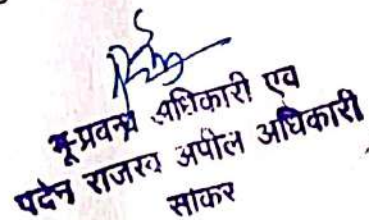 भू-प्रवन्ध अधिकारी एवं
पदेन राजस्व अपील अधिकारी
सीकर